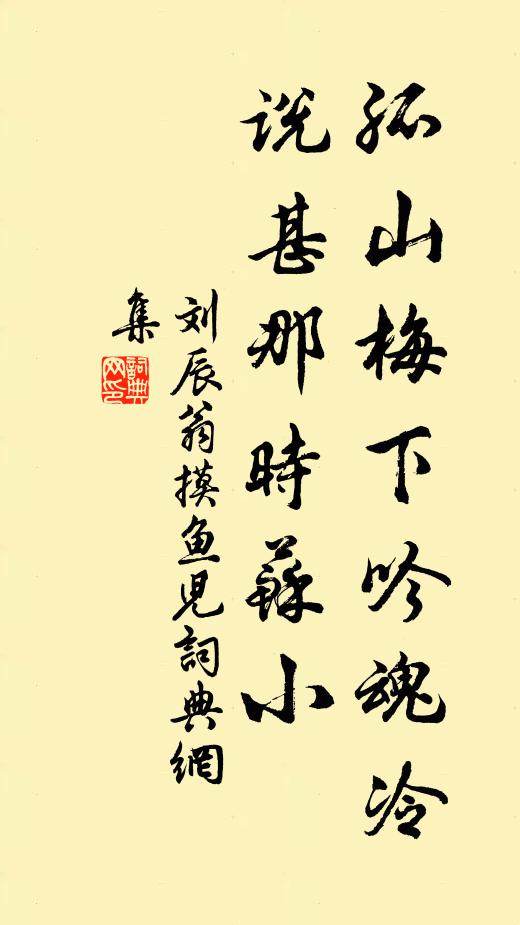 孤山梅下吟魂冷
説甚那時蘇小
刘辰翁摸鱼児詞典網
集
詞典
网印